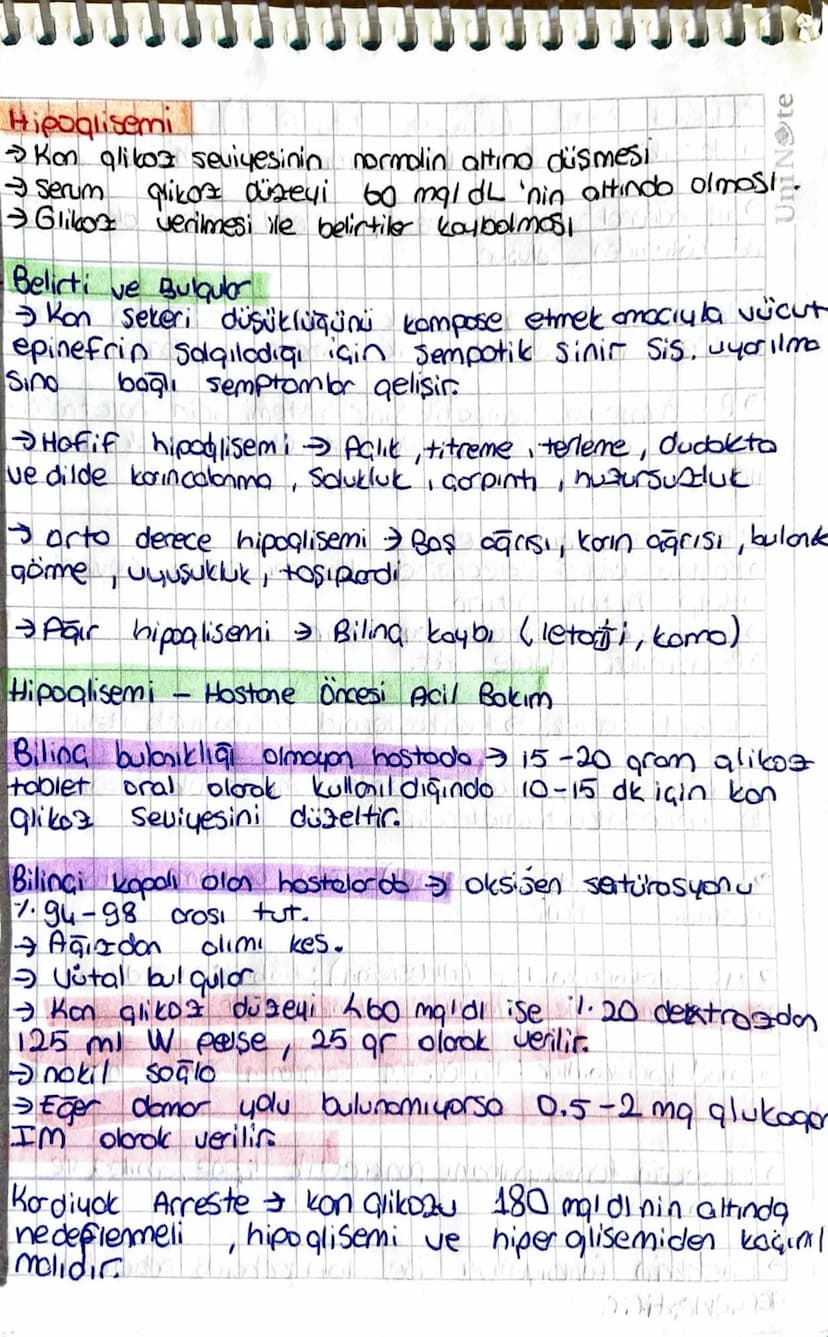 UniNote
Hipoglisemi
→ Kan glikoz seviyesinin normalin altına düşmesi
→ Serum glikoz düzeyi 60 mg/dL 'nin altında olması.
→ Glikoz verilmesi ile belirtiler kaybolması
Belirti ve Bulgular
→ Kan şekeri düşüklüğünü kompose etmek amacıyla vücut
epinefrin salgıladığı için sempatik sinir sis. uyarılma
sına bağlı semptomlar gelişir.
→ Hafif hipoglisemi → Açlık, titreme, terleme, dudakta
ve dilde karıncalanma, Solukluk, çarpıntı, huzursuzluk
→ orta derece hipoglisemi → Baş ağrısı, karın ağrısı, bulanık
görme, uyuşukluk, taşipardi
→ Ağır hipoglisemi → Bilinç kaybı (letarji, koma)
Hipoglisemi - Hastane Öncesi Acil Bakım
Bilinç bulanıklığı olmayan hastada → 15-20 gram glikoz
tablet oral olarak kullanıldığında 10-15 dk için kan
glikoz seviyesini düzeltir.
Bilinci kapalı olan hastalarda → oksijen satürasyonu
%94-98 arası tut.
→ Ağızdan alımı kes.
→ Vital bulgular
→ Kan glikoz düzeyi <60 mg/dl ise %20 dextrozdan
125 ml IV puşe, 25 gr olarak verilir.
→ nakil sağla
→ Eğer damar yolu bulunamıyorsa 0.5-2 mg glukagon
IM olarak verilir.
Kardiyak Arreste → kan glikozu 180 mg/dl nin altında
hedeflenmeli, hipoglisemi ve hiperglisemiden kaçınıl
malıdır.